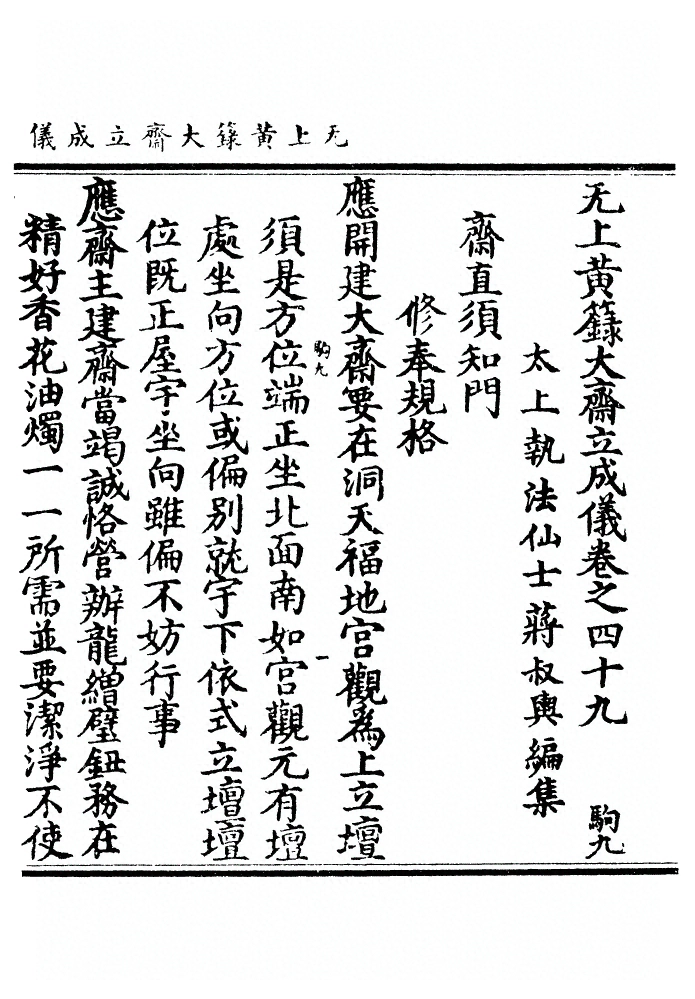 无上黃籙大齋立成儀
无上黃籙大齋立成儀卷之四十九 駒九
太上執法仙士蔣叔輿編集
齋直須知門
修奉規格
應開建大齋要在洞天福地宮觀為上立壇
須是方位端正坐北面南如宮觀元有壇
駒九
一
處坐向方位或偏別就宇下依式立壇壇
位既正屋宇坐向雖偏不妨行事
應齋主建齋當竭誠恪營辦龍繒璧鈕務在
精好香花油燭一一所需並要潔淨不使